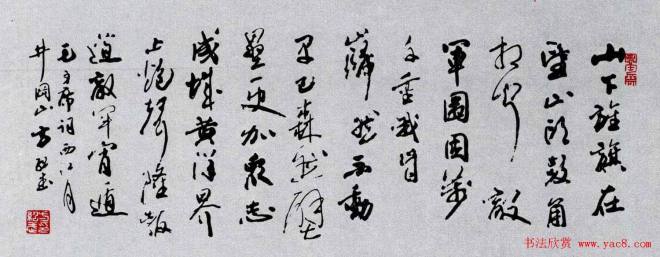 山下旌旗在
望山頭鼓角
相聞敵
軍圍困萬
千重我自
巋然不動
早已森嚴壁
壘更加眾志
成城黃洋界
上炮聲隆報
道敵軍宵遁
毛主席詞西江月
井岡山方书
书法欣赏 www.yac8.com